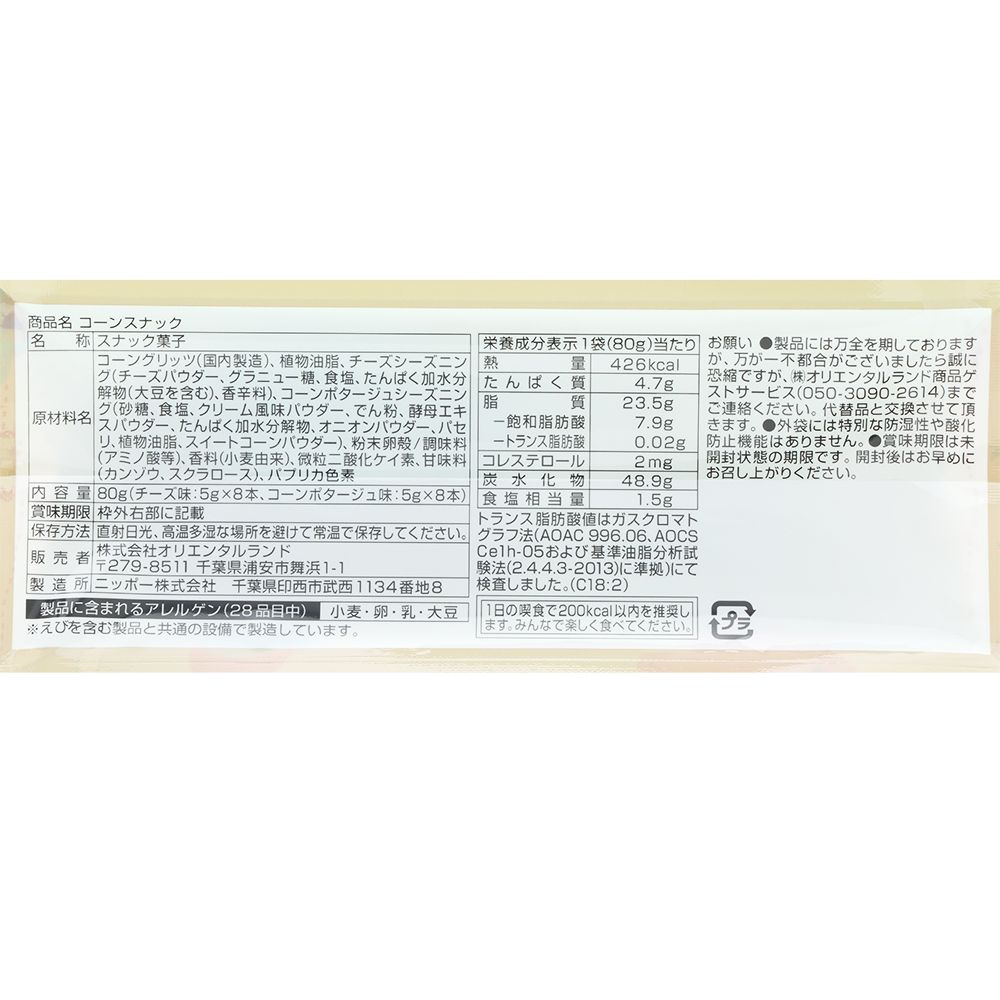 商品名 コーンスナック
名称 スナック菓子
原材料名 コーングリッツ(国内製造)、植物油脂、チーズシーズニン
グ(チーズパウダー、グラニュー糖、食塩、たんぱく加水分
解物(大豆を含む)、香辛料)、コーンポタージュシーズニン
グ(砂糖、食塩、クリーム風味パウダー、でん粉、酵母エキ
スパウダー、たんぱく加水分解物、オニオンパウダー、パセ
リ、植物油脂、スイートコーンパウダー)、粉末卵殻/調味料
(アミノ酸等)、香料(小麦由来)、微粒二酸化ケイ素、甘味料
(カンゾウ、スクラロース)、パプリカ色素
内容量 80g(チーズ味:5g×8本、コーンポタージュ味:5g×8本)
賞味期限 枠外右部に記載
保存方法 直射日光、高温多湿な場所を避けて常温で保存してください。
販売者 株式会社オリエンタルランド
〒279-8511 千葉県浦安市舞浜1-1
製造所 ニッポー株式会社 千葉県印西市武西1134番地8
製品に含まれるアレルゲン(28品目中) 小麦・卵・乳・大豆
※えびを含む製品と共通の設備で製造しています。
栄養成分表示 1袋(80g)当たり
熱量 426kcal
たんぱく質 4.7g
脂質 23.5g
－飽和脂肪酸 7.9g
－トランス脂肪酸 0.02g
コレステロール 2mg
炭水化物 48.9g
食塩相当量 1.5g
トランス脂肪酸値はガスクロマト
グラフ法(AOAC 996.06、AOCS
Ce1h-05および基準油脂分析試
験法(2.4.4.3-2013)に準拠)にて
検査しました。(C18:2)
1日の喫食で200kcal以内を推奨し
ます。みんなで楽しく食べてください。
お願い ●製品には万全を期しております
が、万が一不都合がございましたら誠に
恐縮ですが、㈱オリエンタルランド商品ゲ
ストサービス(050-3090-2614)まで
ご連絡ください。代替品と交換させて頂
きます。●外袋には特別な防湿性や酸化
防止機能はありません。●賞味期限は未
開封状態の期限です。開封後はお早めに
お召し上がりください。
プラ